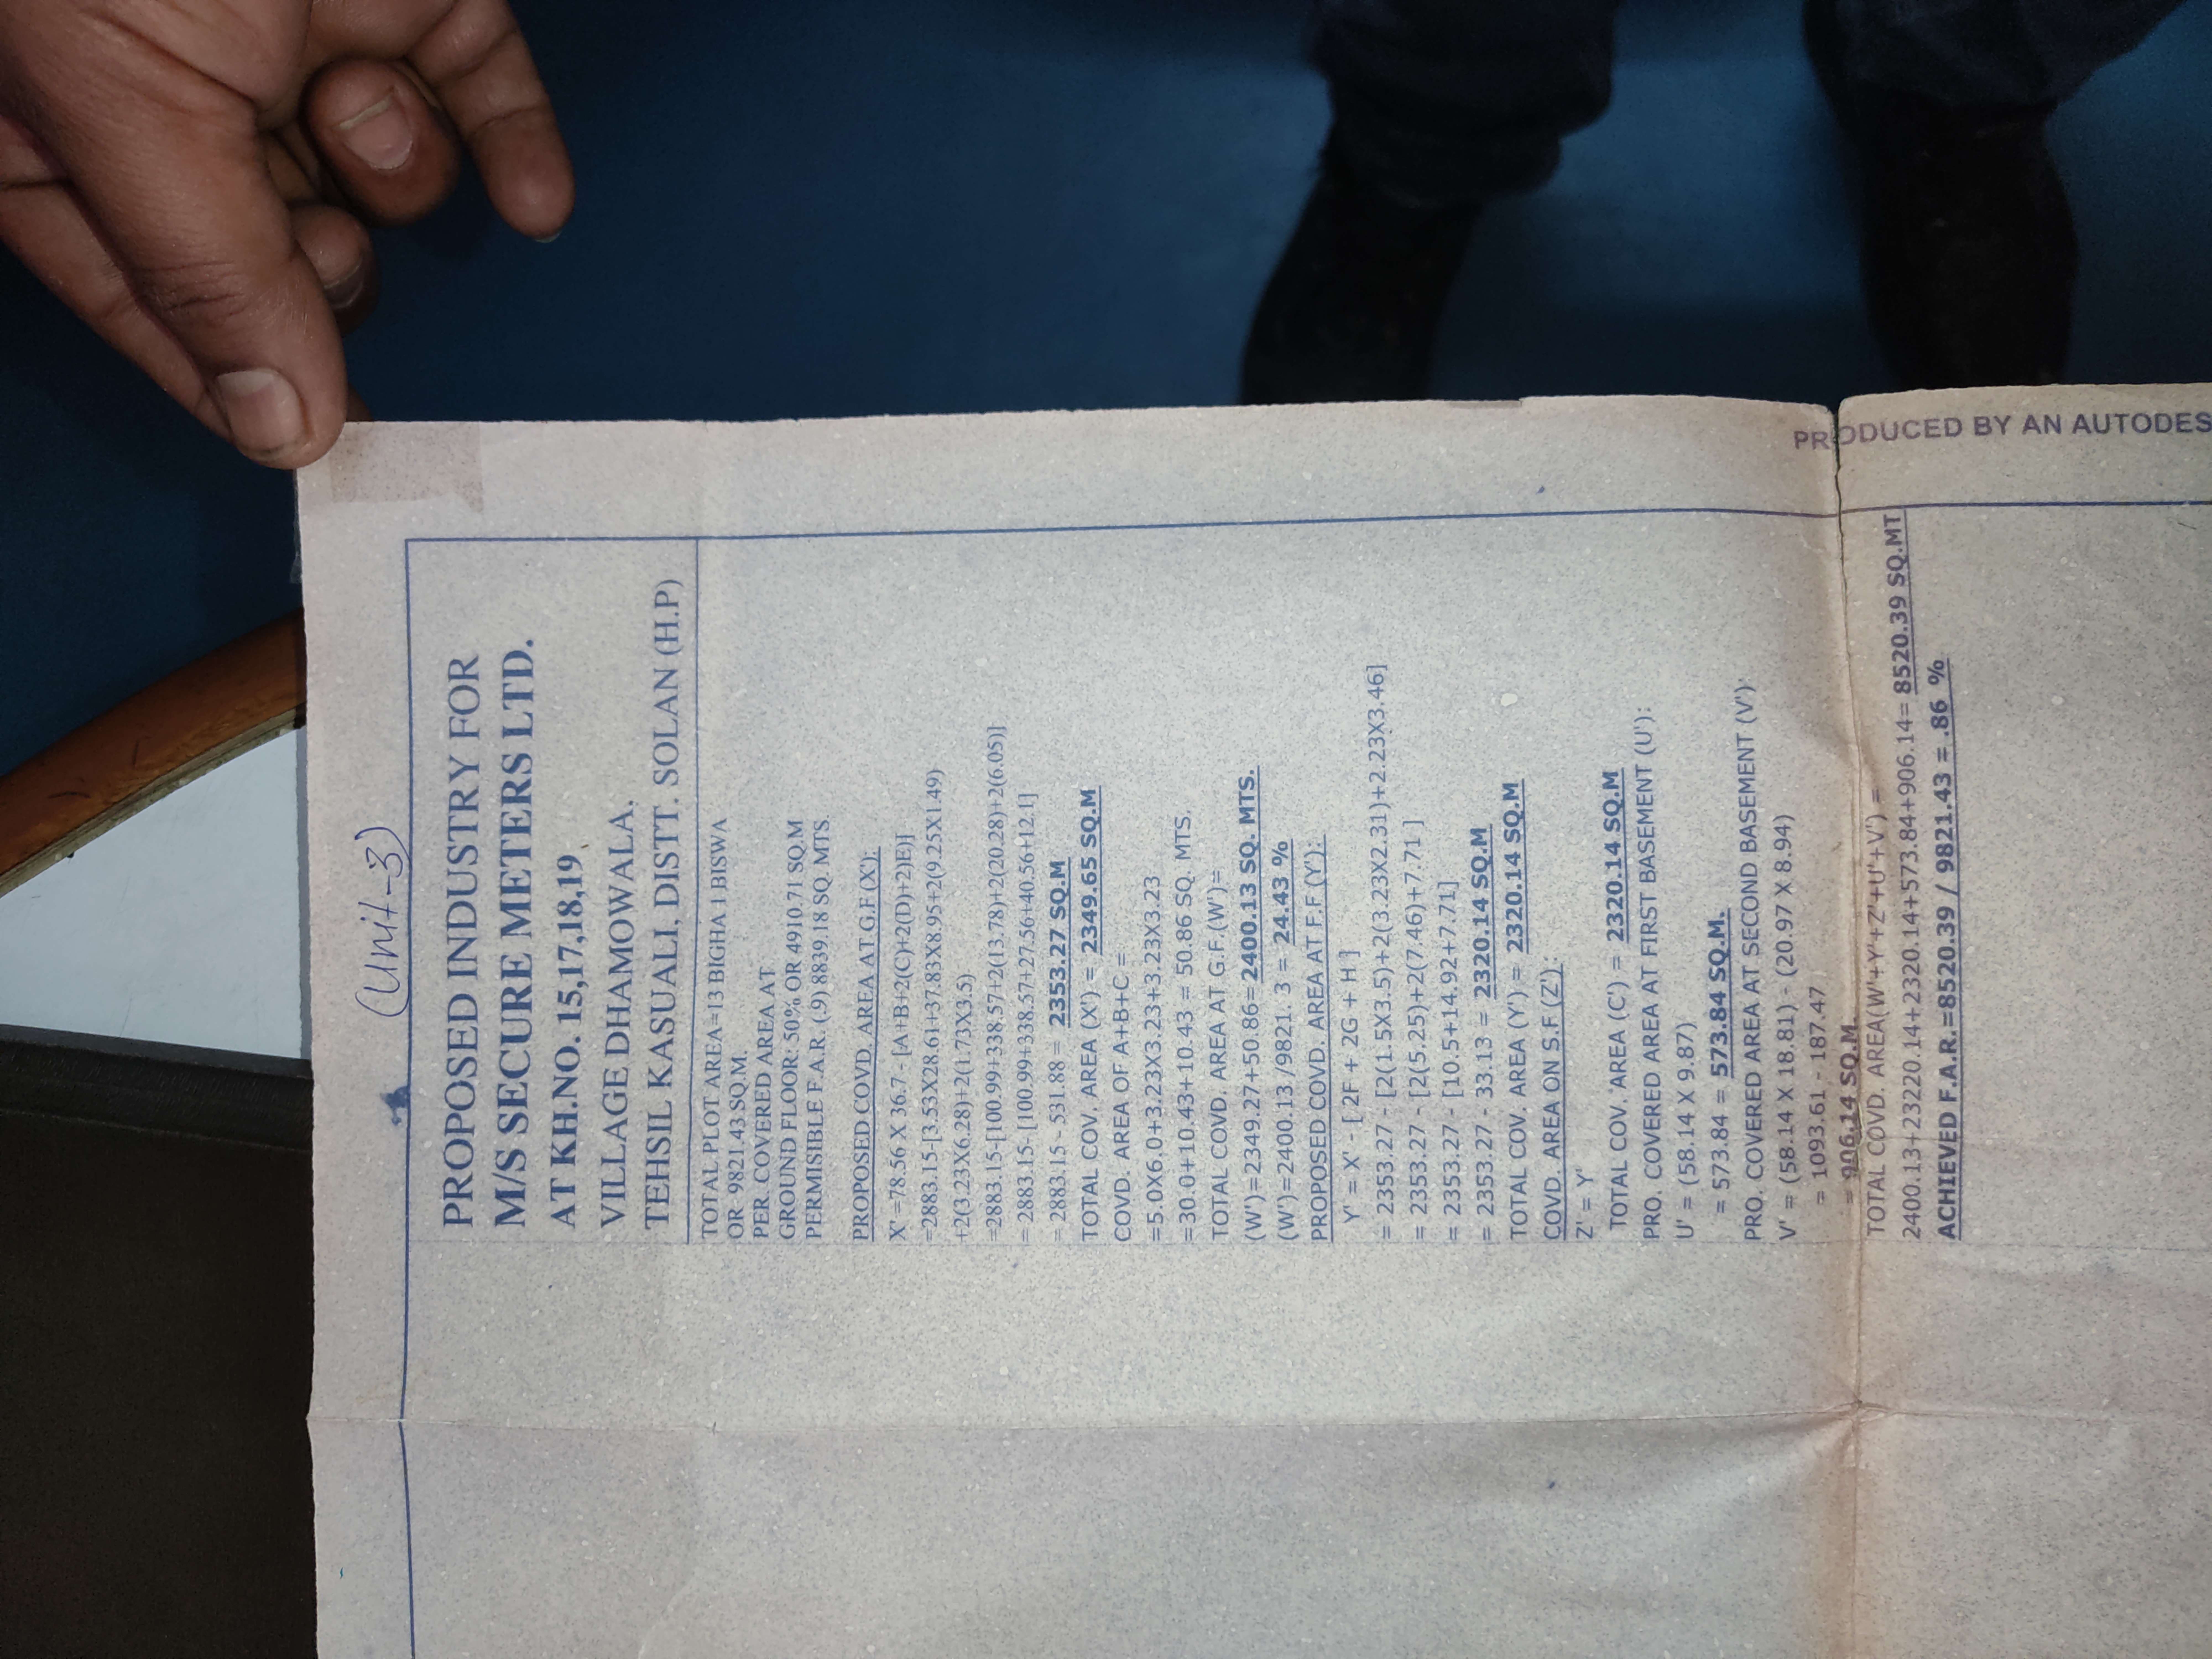 (Unit-3)
PROPOSED INDUSTRY FOR
M/S SECURE METERS LTD.
AT KH.NO. 15,17,18,19
VILLAGE DHAMOWALA.
TEHSIL KASUALI, DISTT. SOLAN (H.P)
TOTAL PLOT AREA=13 BIGHA 1 BISWA
OR 9821.43 SQ.M.
PER. COVERED AREA AT
GROUND FLOOR: 50% OR 4910.71 SQ.M
PERMISIBLE F.A.R. (.9) 8839.18 SQ. MTS.
PROPOSED COVD. AREA AT G.F (X'):
X' =78.56 X 36.7 - [A+B+2(C)+2(D)+2)E)]
=2883.15-[3.53X28.61+37.83X8.95+2(9.25X1.49)
+2(3.23X6.28)+2(1.73X3.5)
=2883.15-[100.99+338.57+2(13.78)+2(20.28)+2(6.05)]
= 2883.15- [100.99+338.57+27.56+40.56+12.1]
= 2883.15 - 531.88 = 2353.27 SQ.M
TOTAL COV. AREA (X') = 2349.65 SQ.M
COVD. AREA OF A+B+C =
=5.0X6.0+3.23X3.23+3.23X3.23
=30.0+10.43+10.43 = 50.86 SQ. MTS.
TOTAL COVD. AREA AT G.F.(W')=
(W')=2349.27+50.86=2400.13 SQ. MTS.
(W')=2400.13 /9821. 3 = 24.43 %
PROPOSED COVD. AREA AT F.F (Y'):
Y' = X' - [ 2F + 2G + H ]
= 2353.27 - [2(1.5X3.5)+2(3.23X2.31)+2.23X3.46]
= 2353.27 - [2(5.25)+2(7.46)+7.71 ]
= 2353.27 - [10.5+14.92+7.71]
= 2353.27 - 33.13 = 2320.14 SQ.M
TOTAL COV. AREA (Y') = 2320.14 SQ.M
COVD. AREA ON S.F (Z'):
Z' = Y'
TOTAL COV. AREA (C') = 2320.14 SQ.M
PRO. COVERED AREA AT FIRST BASEMENT (U'):
U' = (58.14 X 9.87)
= 573.84 = 573.84 SQ.M.
PRO. COVERED AREA AT SECOND BASEMENT (V'):
V' = (58.14 X 18.81) - (20.97 X 8.94)
= 1093.61 - 187.47
= 906.14 SQ.M.
TOTAL COVD. AREA(W'+Y'+Z'+U'+V') =
2400.13+23220.14+2320.14+573.84+906.14= 8520.39 SQ.MT
ACHIEVED F.A.R.=8520.39 / 9821.43 = .86 %
PRODUCED BY AN AUTODES